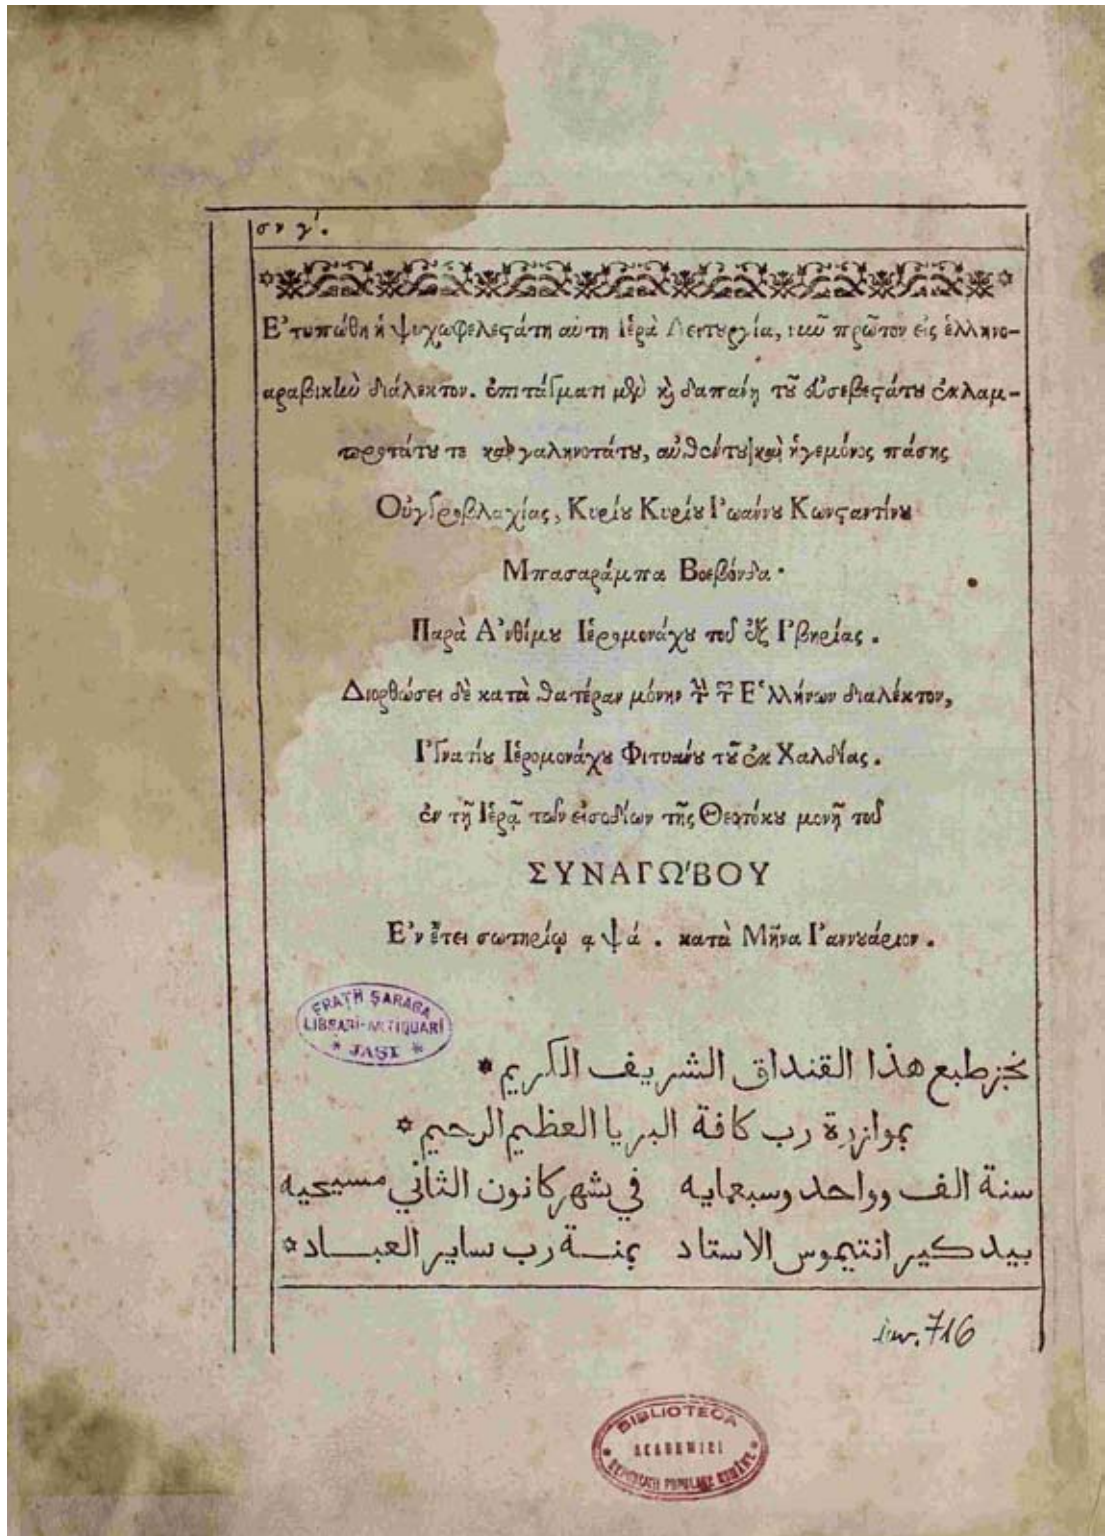 σνγ´.
Ἐτυπώθη ἡ ψυχωφελεστάτη αὕτη Ἱερὰ Λειτουργία, νιῦ πρῶτον εἰς ἑλληνο-
αραβικὴν διάλεκτον. ἐπιτάγματι μὲν καὶ δαπάνῃ τοῦ εὐσεβεστάτου ἐκλαμ-
προτάτου τε καὶ γαληνοτάτου, αὐθέντου καὶ ἡγεμόνος πάσης
Οὐγγροβλαχίας, Κυρίου Κυρίου Ἰωάννου Κωνσταντίνου
Μπασαράμπα Βοεβόνδα.
Παρὰ Ἀνθίμου Ἱερομονάχου τοῦ ἐξ Ἰβηρίας.
Διορθώσει δὲ κατὰ θατέραν μόνην τὴν τῶν Ἑλλήνων διάλεκτον,
Ἰγνατίου Ἱερομονάχου Φιτυάνου τοῦ ἐκ Χαλδίας.
ἐν τῇ Ἱερᾷ τῶν εἰσοδίων τῆς Θεοτόκου μονῇ τοῦ
ΣΥΝΑΓΩ´ΒΟΥ
Ἐν ἔτει σωτηρίῳ αψά. κατὰ Μῆνα Ἰαννουάριον.
FRAȚII ȘARAGA
LIBRARI-ANTIQUARI
* JAȘI *
نجز طبع هذا القنداق الشريف الكريم *
بموازرة رب كافة البريا العظيم الرحيم *
سنة الف وواحد وسبعمايه في شهر كانون الثاني مسيحيه
بيد كير انتيموس الاستاد بمنة رب ساير العباد *
inv. 716
BIBLIOTECA
ACADEMIEI
REPUBLICII POPULARE ROMÂNE